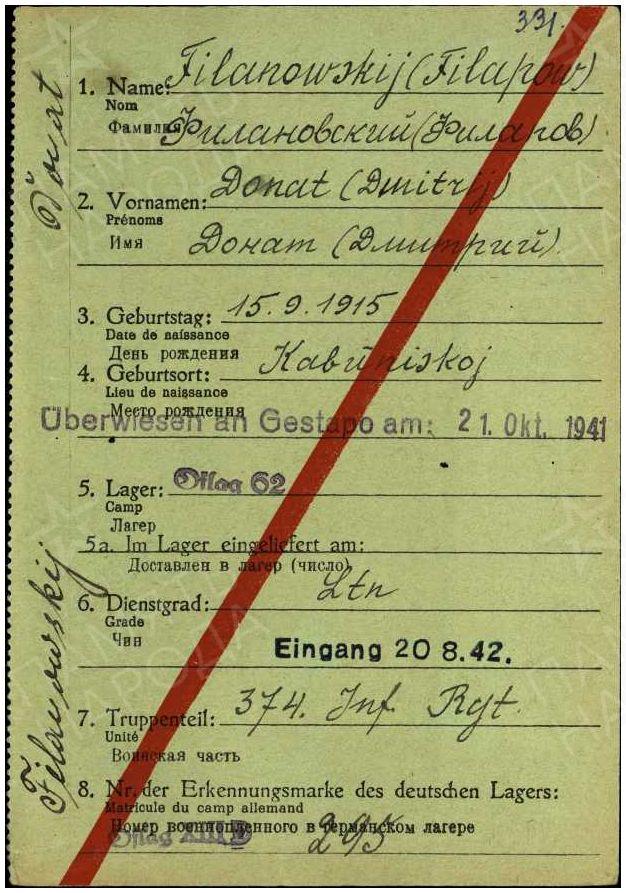 331.
1. Name: Filanowskij (Filapow)
Nom
Фамилия Филановский (Филапов)
2. Vornamen: Donat (Dmitrij)
Prénoms
Имя Донат (Дмитрий)
3. Geburtstag: 15.9.1915
Date de naissance
День рождения
4. Geburtsort: Kabüniskoj
Lieu de naissance
Место рождения
Überwiesen an Gestapo am: 21. Okt. 1941
5. Lager: Oflag 62
Camp
Лагерь
5a. Im Lager eingeliefert am:
Доставлен в лагер (число)
6. Dienstgrad: Ltn
Grade
Чин
Eingang 20 8.42.
7. Truppenteil: 374. Inf. Rgt.
Unité
Воинская часть
8. Nr. der Erkennungsmarke des deutschen Lagers:
Matricule du camp allemand
Номер военнопленного в германском лагере
Oflag XIII D 295
Filanowskij Donat